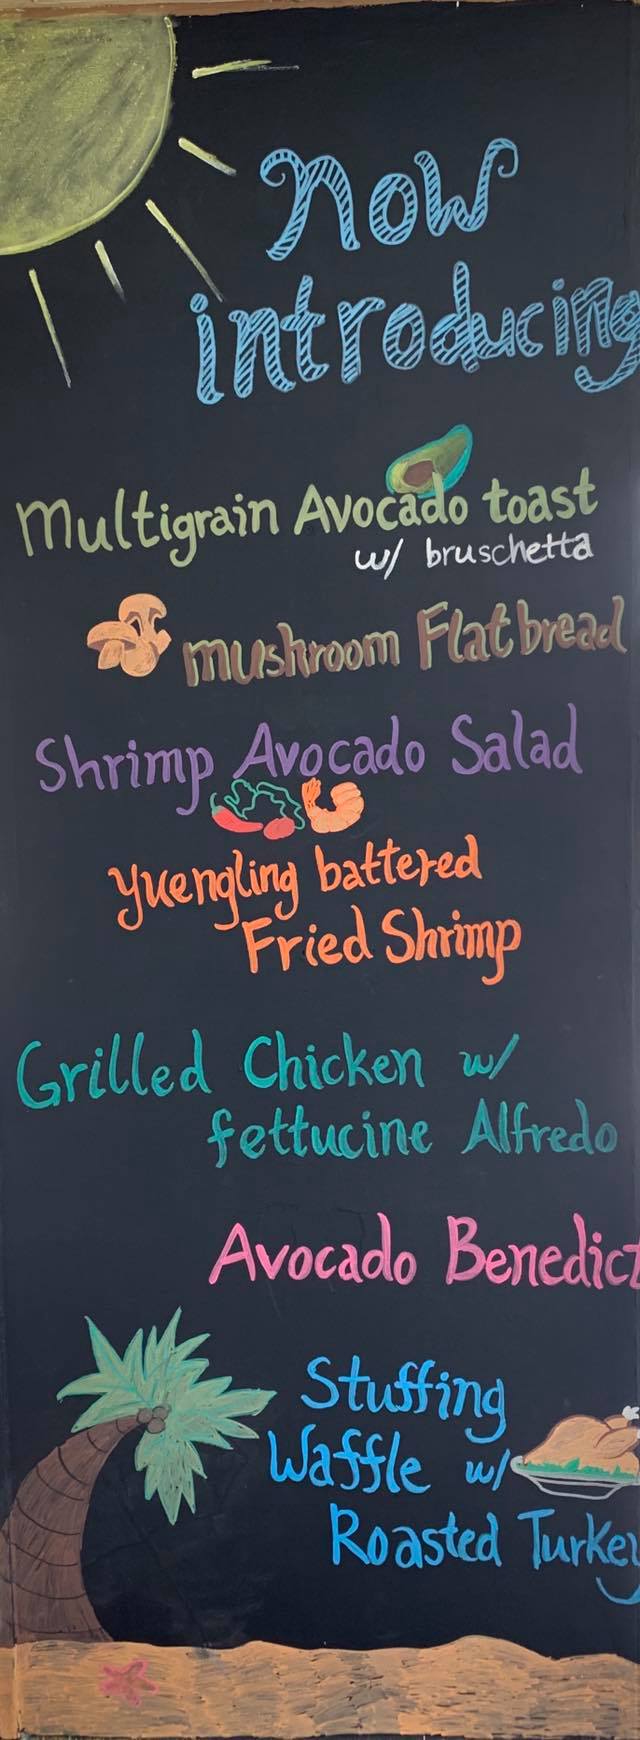 now
introducing
Multigrain Avocado toast
w/ bruschetta
mushroom Flatbread
Shrimp Avocado Salad
Yuengling battered
Fried Shrimp
Grilled Chicken w/
fettucine Alfredo
Avocado Benedict
Stuffing
Waffle w/
Roasted Turkey